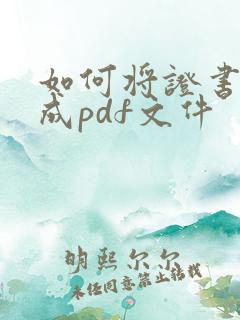 如何将證书
成pdf文件
明熙尔尔
未经同意禁止转载